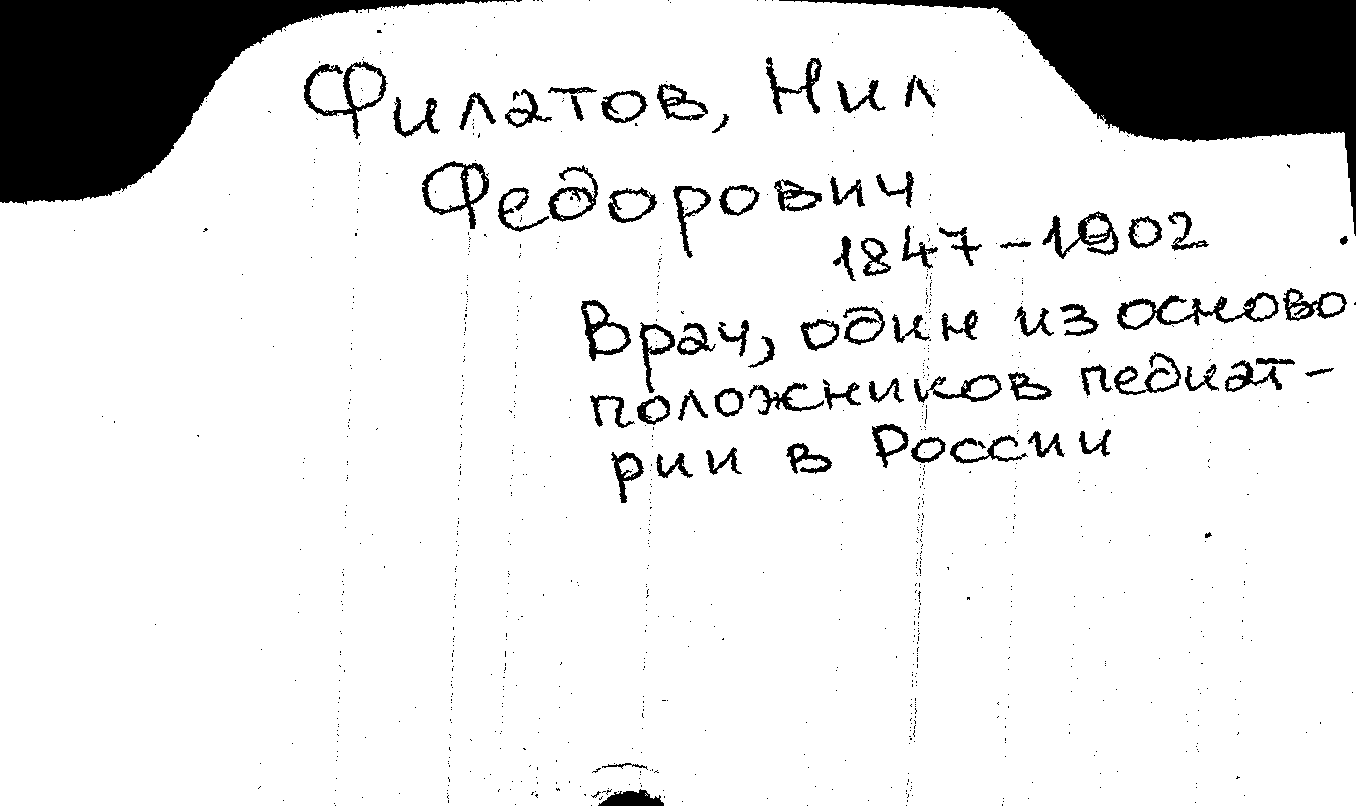 Филатов, Нил
Федорович
1847-1902
Врач, один из осново-
положников педиат-
рии в России